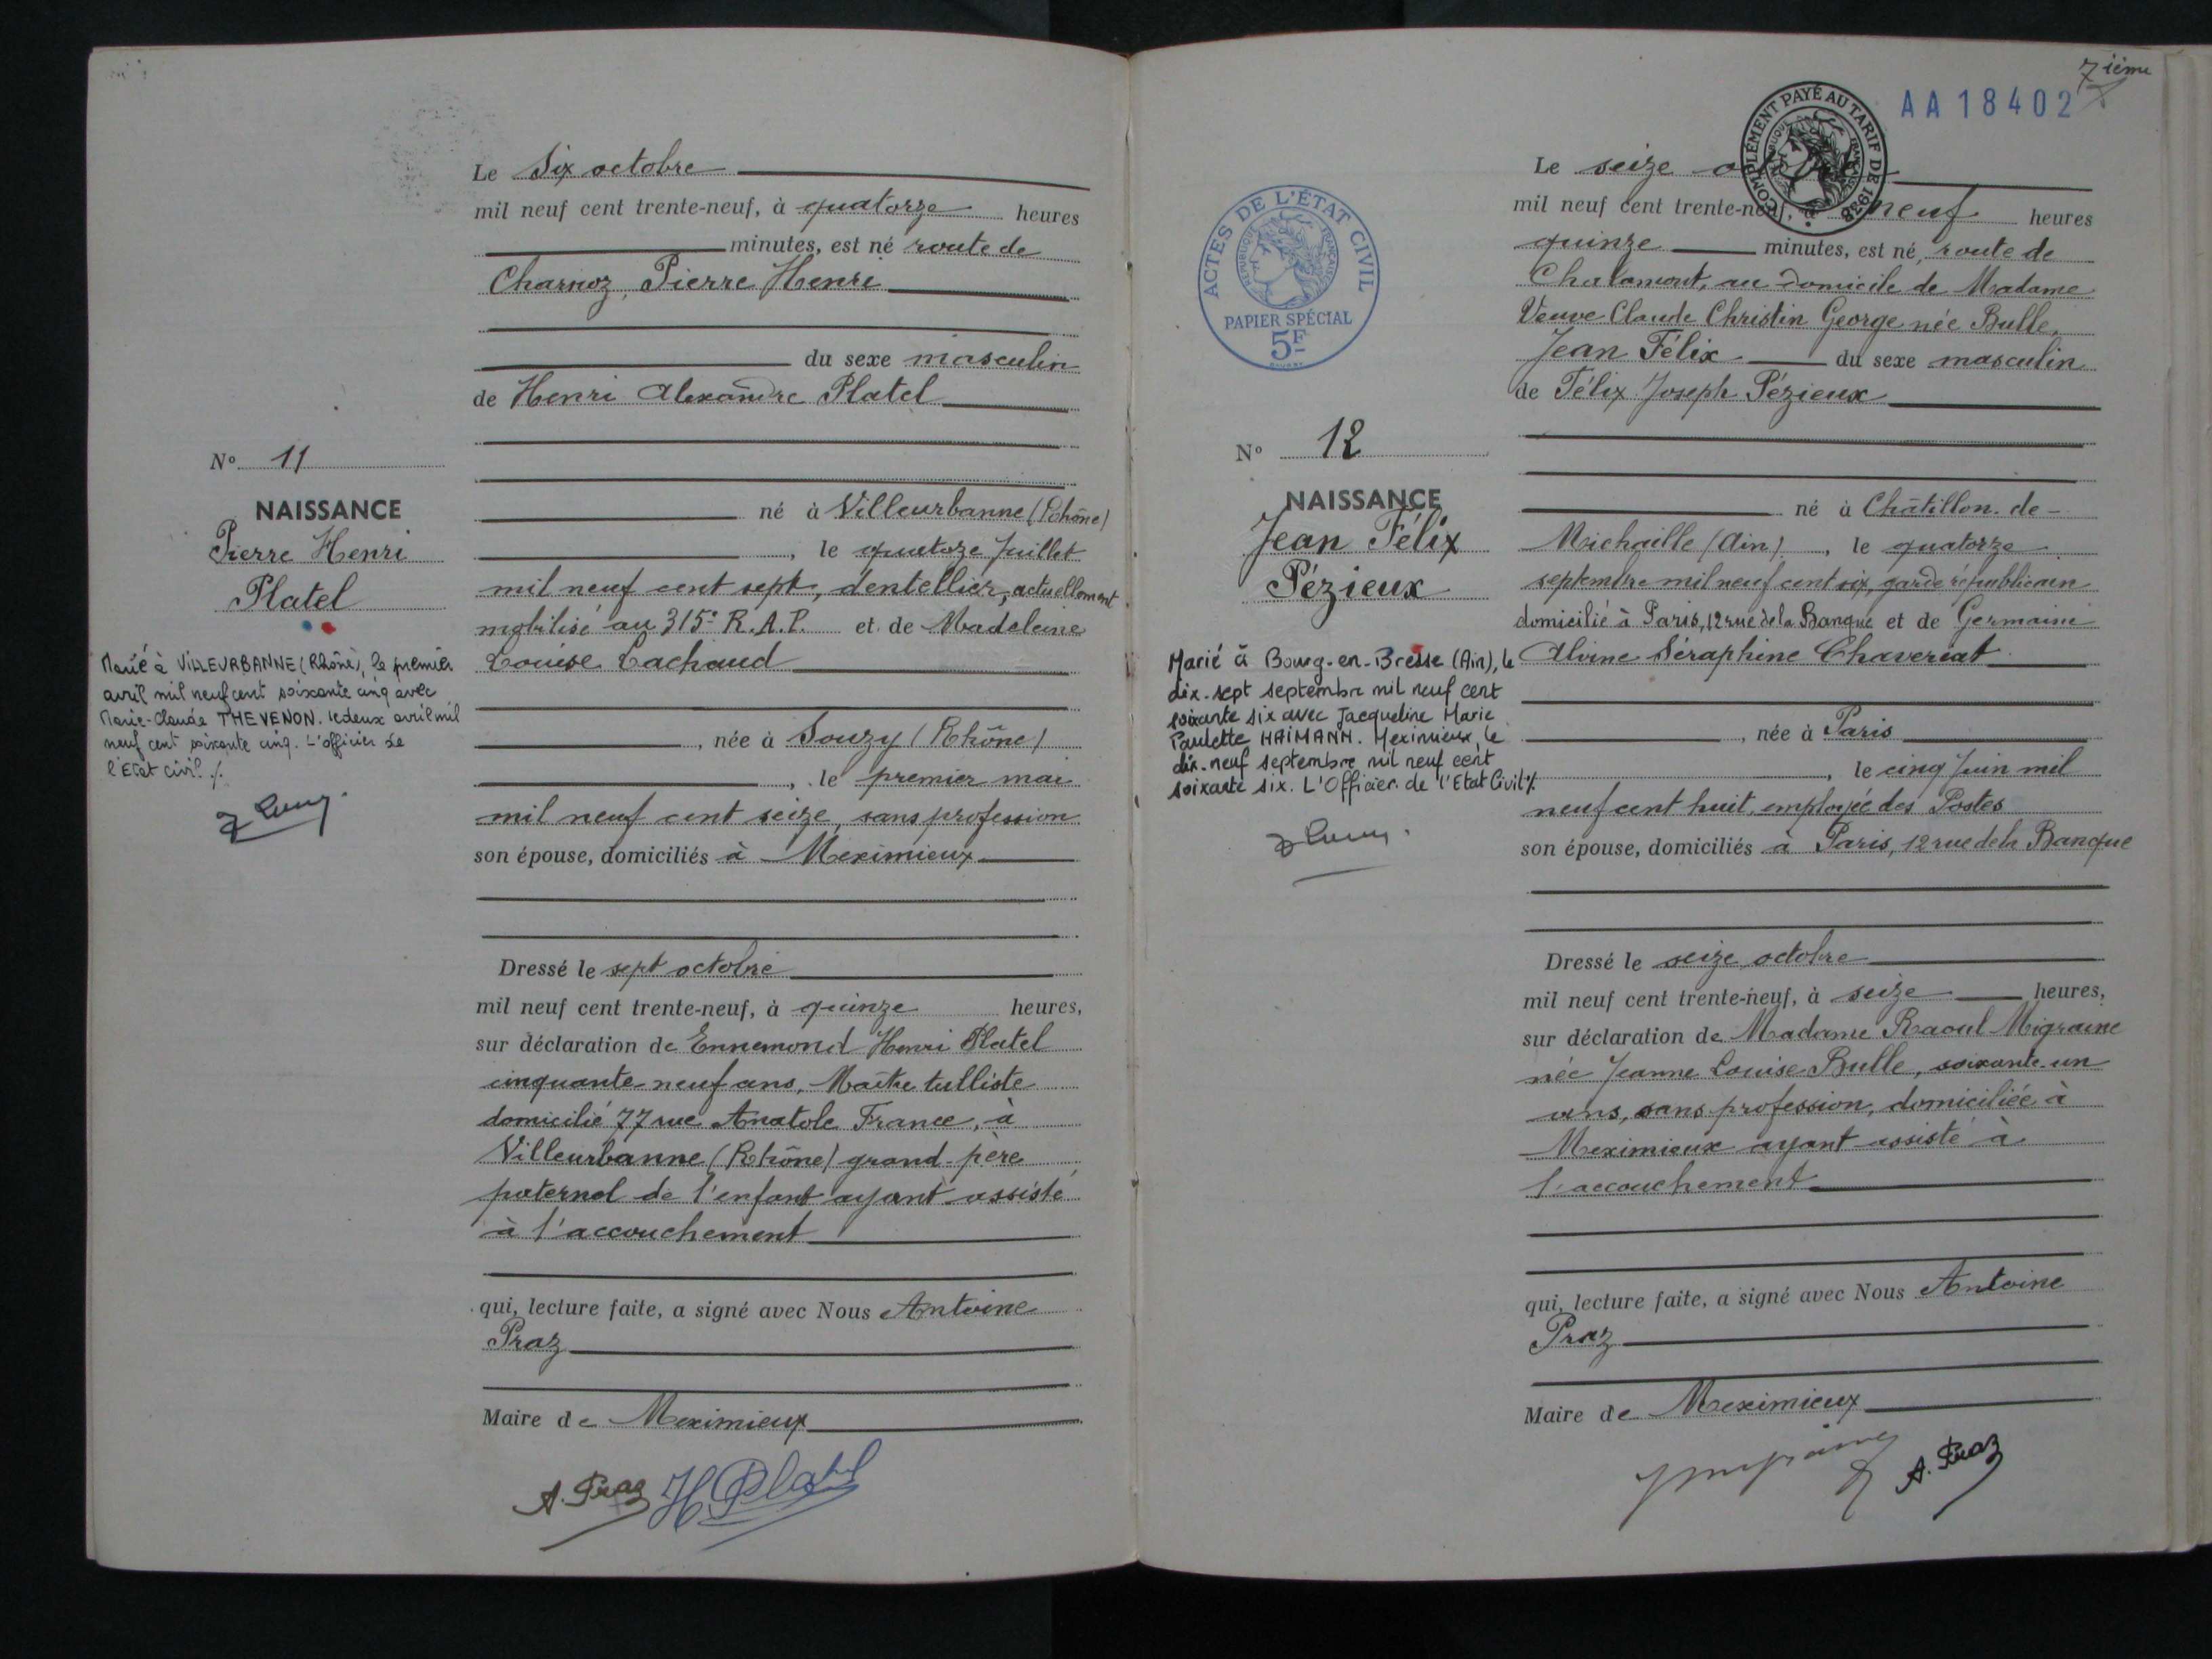 Le Six octobre
mil neuf cent trente-neuf, à quatorze heures
minutes, est né route de
Charnoz, Pierre Henri
du sexe masculin
de Henri Alexandre Platel
né à Villeurbanne (Rhône)
, le quatorze Juillet
mil neuf cent sept, dentellier, actuellement
mobilisé au 315e R.A.P. et de Madeleine
Louise Lachaud
, née à Souzy (Rhône)
, le premier mai
mil neuf cent seize, sans profession
son épouse, domiciliés à Meximieux
Dressé le sept octobre
mil neuf cent trente-neuf, à quinze heures,
sur déclaration de Ennemond Henri Platel
cinquante-neuf ans, Maître tulliste
domicilié 77 rue Anatole France, à
Villeurbanne (Rhône) grand-père
paternel de l'enfant ayant assisté
à l'accouchement
qui, lecture faite, a signé avec Nous Antoine
Praz
Maire de Meximieux
A. Praz H Platel
No 11
NAISSANCE
Pierre Henri
Platel
Marié à VILLEURBANNE (Rhône), le premier
avril mil neuf cent soixante cinq avec
Marie-Claude THEVENON. le deux avril mil
neuf cent soixante cinq. L'officier de
l'Etat civil ./.
7ième
AA18402
COMPLÉMENT PAYÉ AU TARIF DE 1938
RÉPUBLIQUE FRANÇAISE
ACTES DE L'ÉTAT CIVIL
RÉPUBLIQUE FRANÇAISE
PAPIER SPÉCIAL
5F
No 12
NAISSANCE
Jean Félix
Pézieux
Marié à Bourg-en-Bresse (Ain), le
dix-sept septembre mil neuf cent
soixante six avec Jacqueline Marie
Paulette HAIMANN. Meximieux, le
dix-neuf septembre mil neuf cent
soixante six. L'Officier de l'Etat Civil ./.
Le seize
mil neuf cent trente-neuf, à neuf heures
quinze minutes, est né, route de
Chalamont, au domicile de Madame
Veuve Claude Christin George née Bulle,
Jean Félix du sexe masculin
de Félix Joseph Pézieux
né à Châtillon-de-
Michaille (Ain), le quatorze
septembre mil neuf cent six, garde républicain
domicilié à Paris, 12 rue de la Banque et de Germaine
Alvine Séraphine Chaveriat
, née à Paris
, le cinq Juin mil
neuf cent huit, employée des Postes
son épouse, domiciliés à Paris, 12 rue de la Banque
Dressé le seize octobre
mil neuf cent trente-neuf, à seize heures,
sur déclaration de Madame Raoul Migraine
née Jeanne Louise Bulle, soixante-un
ans, sans profession, domiciliée à
Meximieux ayant assisté à
l'accouchement
qui, lecture faite, a signé avec Nous Antoine
Praz
Maire de Meximieux
A. Praz